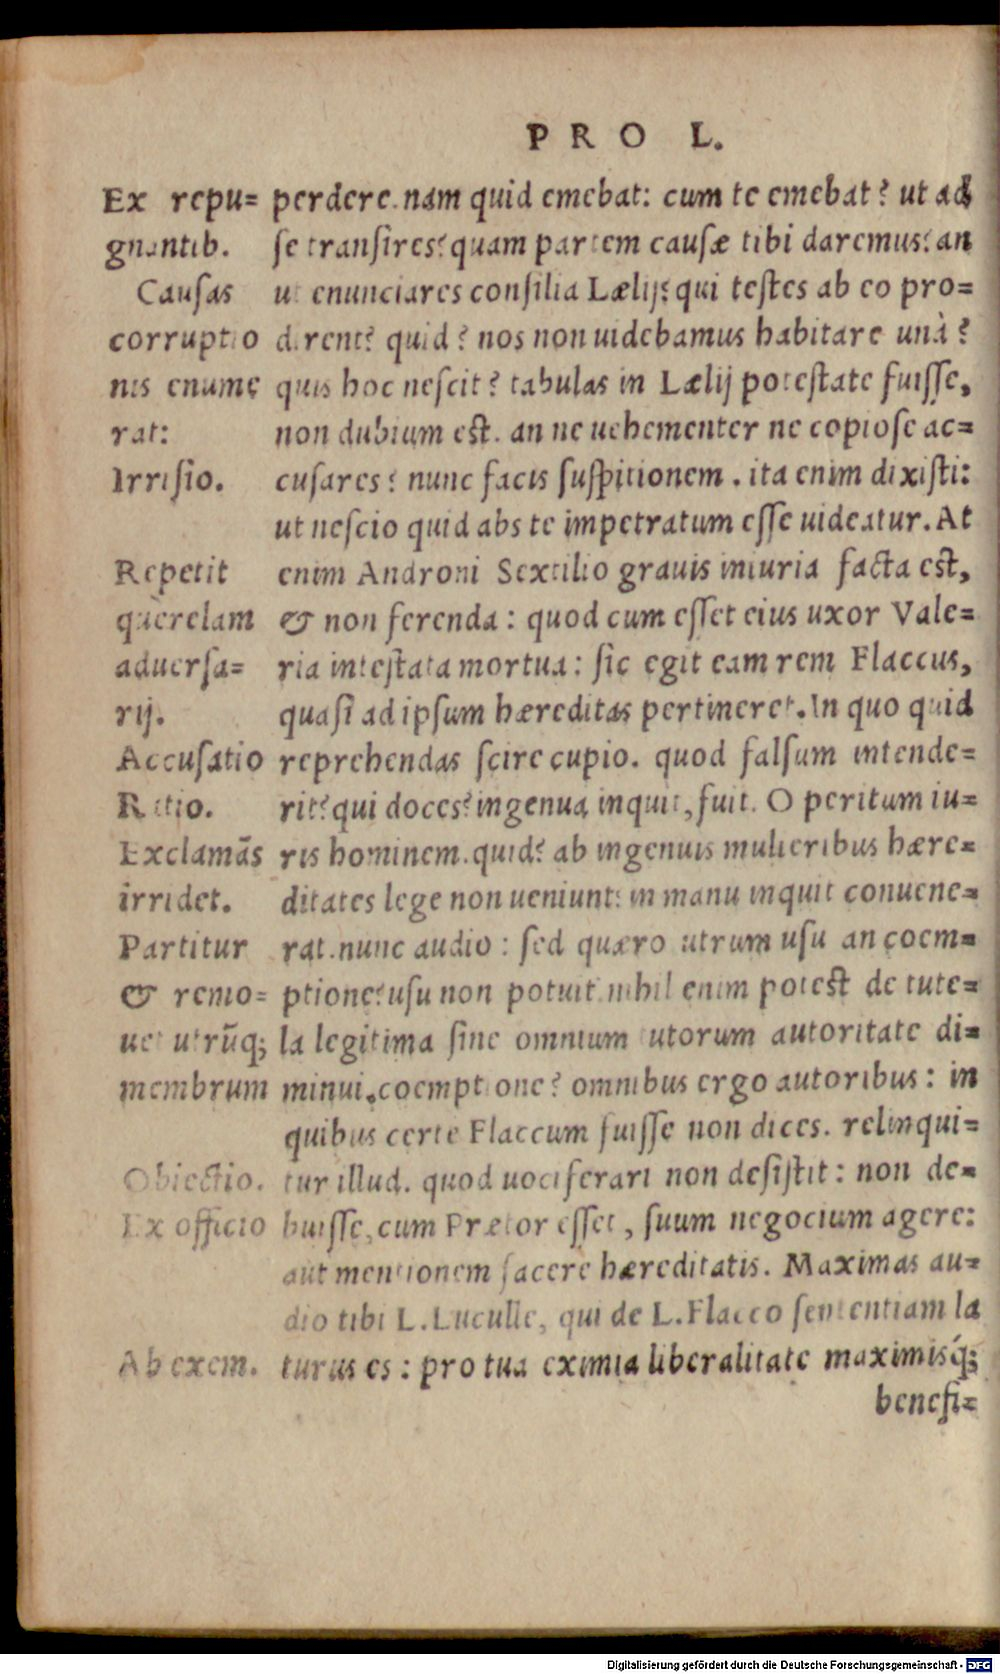 PRO L.
Ex repu=
gnantib.
Causas
corruptio
nis enume
rat:
Irrisio.
Repetit
querelam
aduersa=
rij.
Accusatio
Ratio.
Exclamãs
irridet.
Partitur
& remo=
uet utrũq;
membrum
Obiectio.
Ex officio
Ab exem.
perdere. nam quid emebat: cum te emebat? ut ad
se transires? quam partem causæ tibi daremus? an
ut enunciares consilia Lælij? qui testes ab eo pro=
dirent? quid? nos non uidebamus habitare unà?
quis hoc nescit? tabulas in Lælij potestate fuisse,
non dubium est. an ne uehementer ne copiose ac=
cusares? nunc facis suspitionem. ita enim dixisti:
ut nescio quid abs te impetratum esse uideatur. At
enim Androni Sextilio grauis iniuria facta est,
& non ferenda: quod cum esset eius uxor Vale=
ria intestata mortua: sic egit eam rem Flaccus,
quasi ad ipsum hæreditas pertineret. In quo quid
reprehendas scire cupio. quod falsum intende=
rit? qui doces? ingenua inquit, fuit. O peritum iu=
ris hominem. quid? ab ingenuis mulieribus hære=
ditates lege non ueniunt? in manu inquit conuene=
rat. nunc audio: sed quæro utrum usu an coem=
ptione? usu non potuit. nihil enim potest de tute=
la legitima sine omnium tutorum autoritate di=
minui. coemptione? omnibus ergo autoribus: in
quibus certe Flaccum fuisse non dices. relinqui=
tur illud. quod uociferari non desistit: non de=
buisse, cum Prætor esset, suum negocium agere:
aut mentionem facere hæreditatis. Maximas au=
dio tibi L. Luculle, qui de L. Flacco sententiam la
turus es: pro tua eximia liberalitate maximisq́;
benefi=
Digitalisierung gefördert durch die Deutsche Forschungsgemeinschaft - DFG